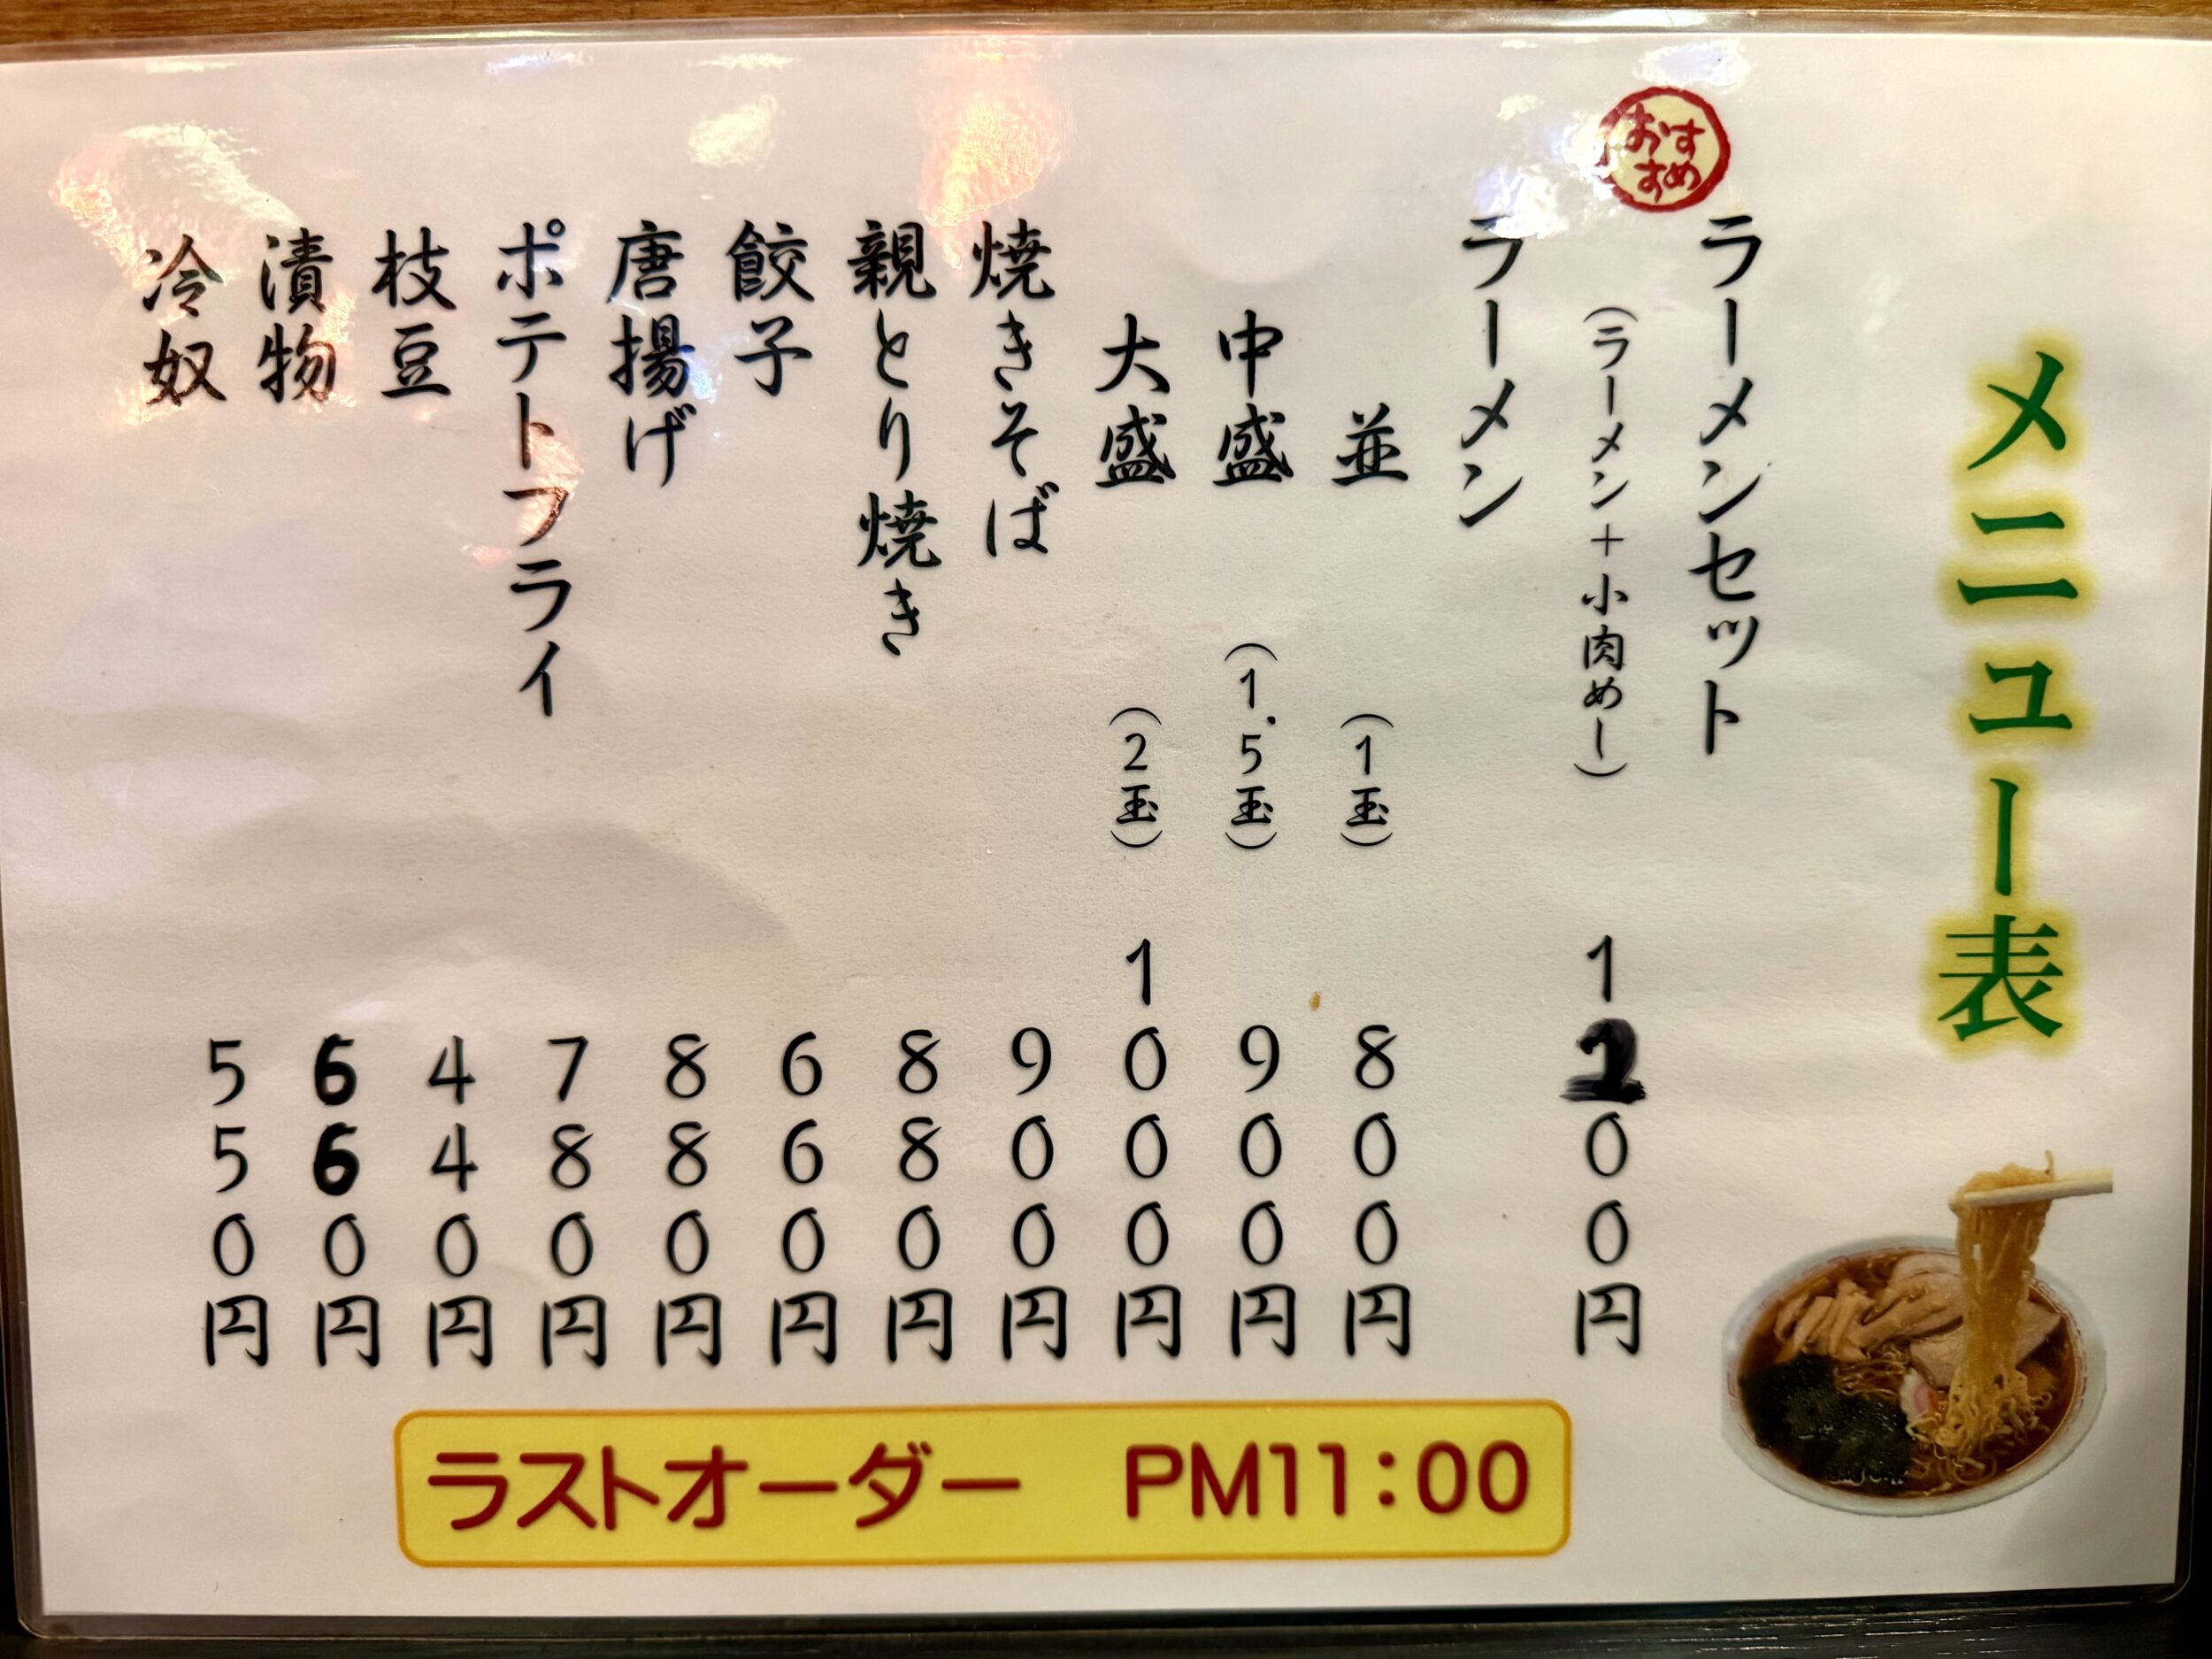 メニュー表
おすすめ
ラーメンセット
(ラーメン+小肉めし) 1200円
ラーメン
並 (1玉) 800円
中盛 (1.5玉) 900円
大盛 (2玉) 1000円
焼きそば 900円
親とり焼き 880円
餃子 660円
唐揚げ 880円
ポテトフライ 780円
枝豆 440円
漬物 660円
冷奴 550円
ラストオーダー PM11:00